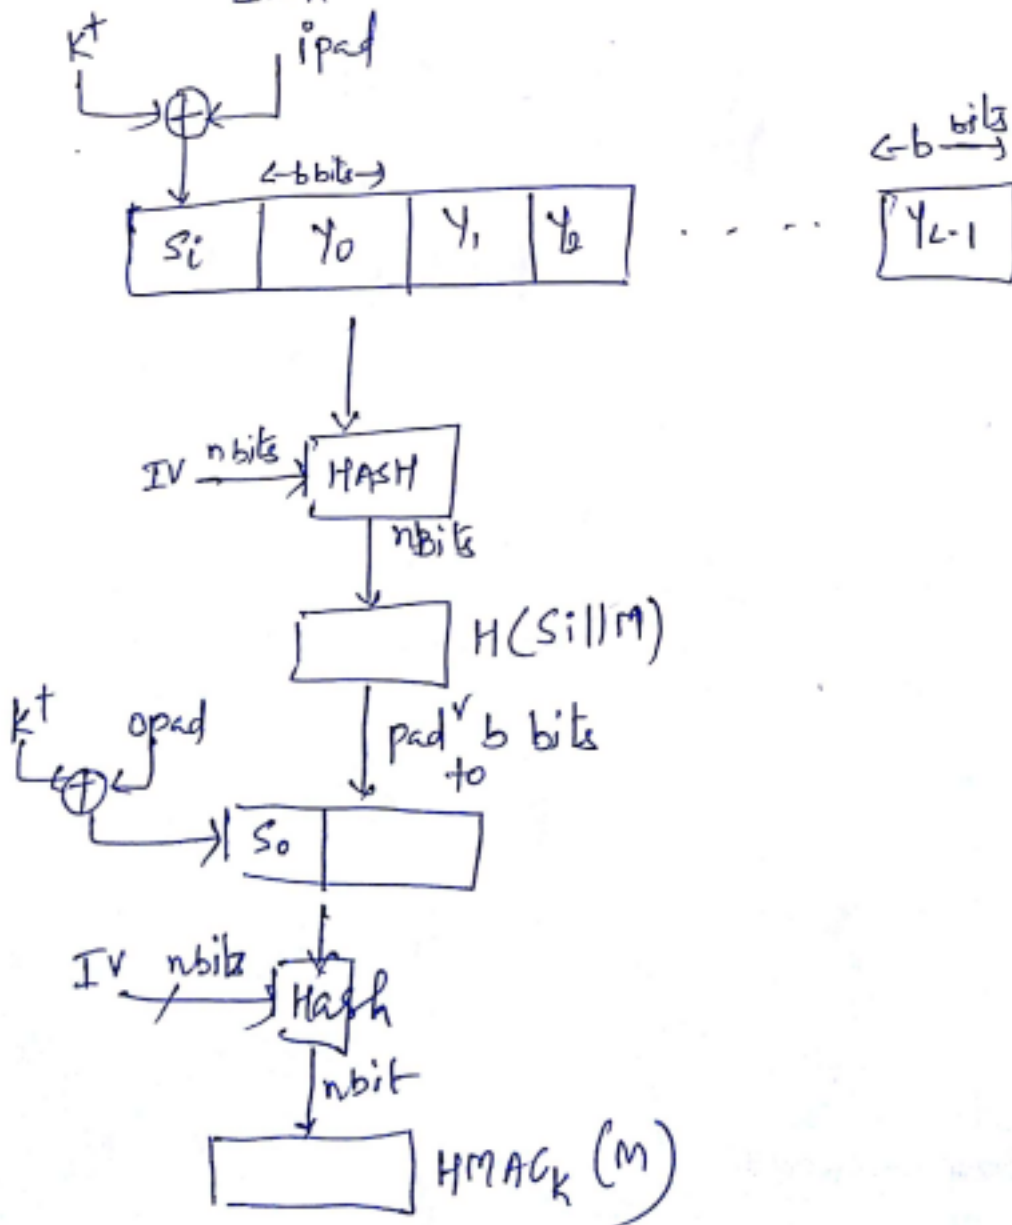 K+ ipad
<-b bits->
<-b bits->
Si Y0 Y1 Y2 . . . . . YL-1
IV nbits HASH
nBits
H(Si||M)
K+ opad
pad to b bits
S0
IV nbits Hash
nbit
HMACK (M)